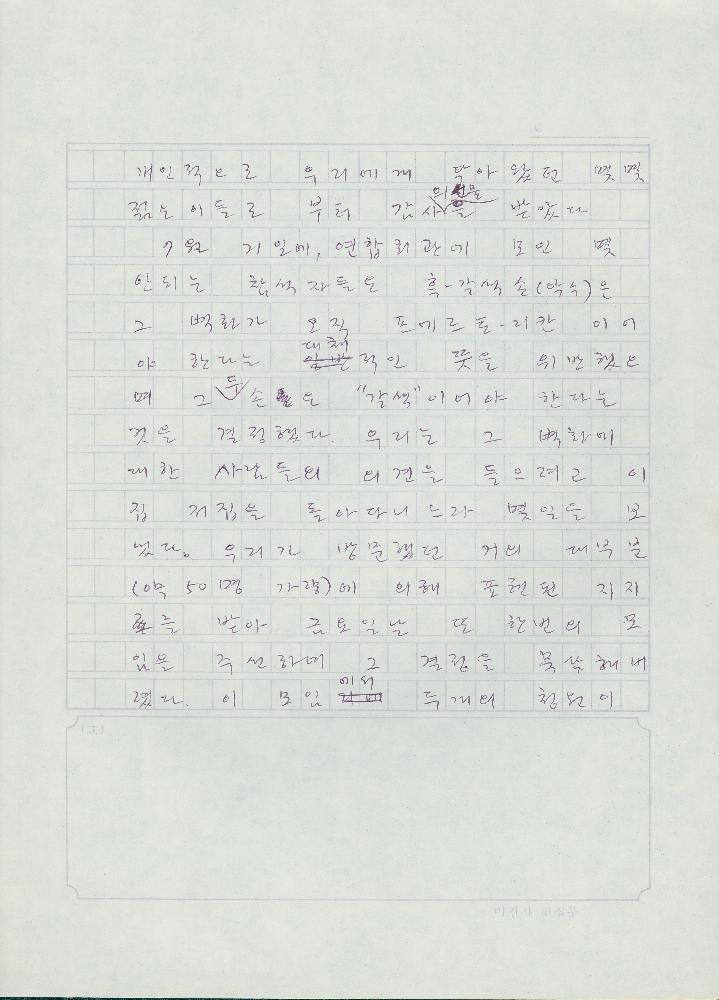 개인적으로 우리에게 닥아 왔던 몇몇
젊은이들로 부터 감사의 선물을 받았다
7월 21일에, 연합회관에 모인 몇
안되는 참석자들도 흑-갈색 손(악수)은
그 벽화가 오직 프에르토-리칸 이어
야 한다는 대체적인 뜻을 위반했으
며 그 두 손은 "갈색"이어야 한다는
것을 결정했다. 우리는 그 벽화에
대한 사람들의 의견을 들으려고 이
집 저집을 돌아다니느라 몇일을 보
냈다. 우리가 방문했던 거의 대부분
(약 50명 가량)에 의해 표현된 지지
를 받아 금요일날 또 한번의 모
임을 주선하며 그 결정을 묵살해버
렸다. 이 모임에서 두개의 청원이